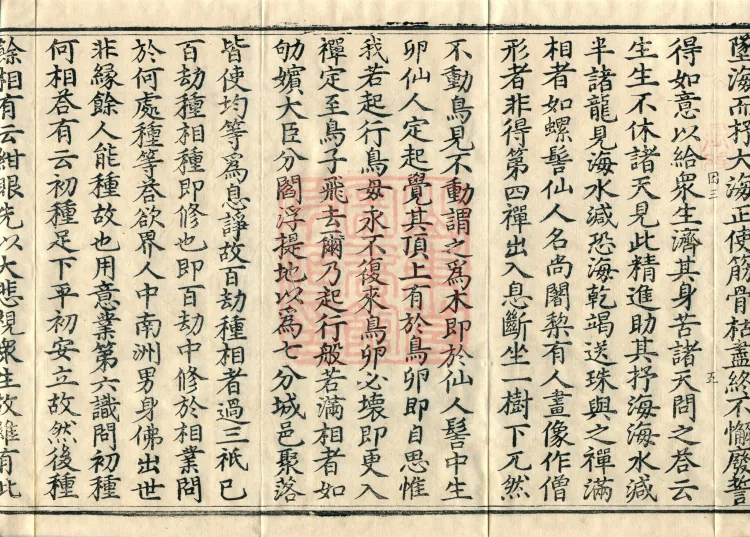 墜海而抒大海正使筋骨枯盡終不懈廢誓
得如意以給衆生濟其身苦諸天問之答云
生生不休諸天見此精進助其抒海海水減
半諸龍見海水減恐海乾竭送珠與之禪滿
相者如螺髻仙人名尚闍梨有人畫像作僧
形者非得第四禪出入息斷坐一樹下兀然
不動鳥見不動謂之爲木即於仙人髻中生
卵仙人定起覺其頂上有於鳥卵即自思惟
我若起行鳥母永不復來鳥卵必壞即更入
禪定至鳥子飛去爾乃起行般若滿相者如
劬嬪大臣分閻浮提地以爲七分城邑聚落
皆使均等爲息諍故百劫種相者過三祇已
百劫種相種即修也即百劫中修於相業問
於何處種等答欲界人中南洲男身佛出世
非緣餘人能種故也用意業第六識問初種
何相荅有云初種足下平初安立故然後種
餘相有云紺眼先以大悲視衆生故雖有此
囯三
五